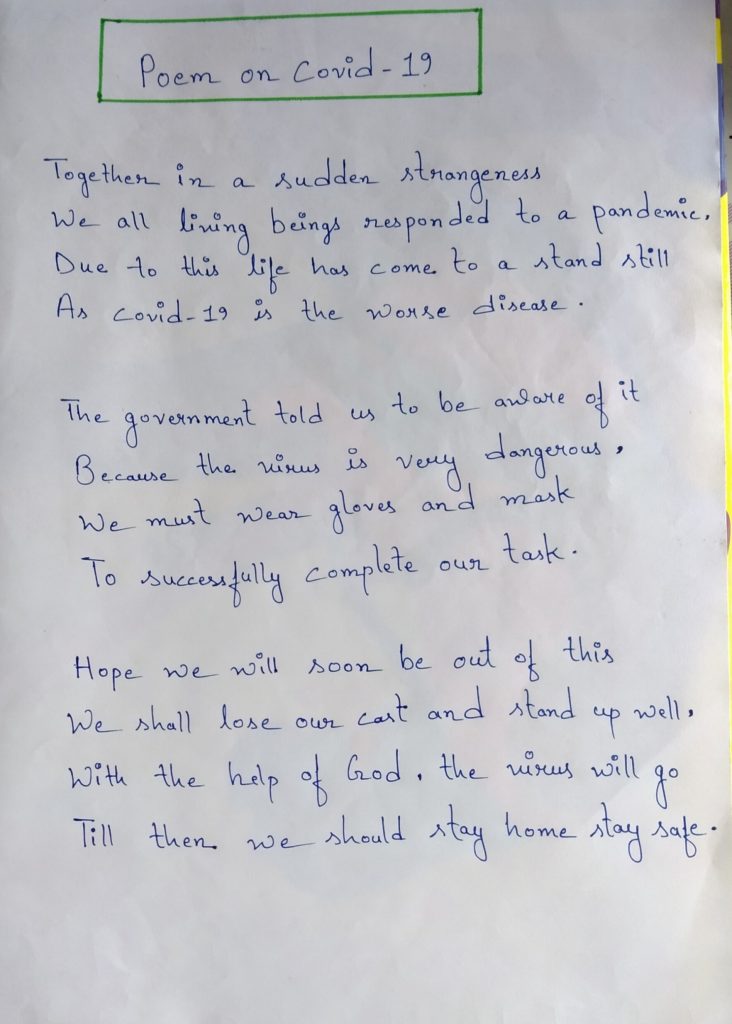 Poem on Covid-19
Together in a sudden strangeness
We all living beings responded to a pandemic,
Due to this life has come to a stand still
As Covid-19 is the worse disease.
The government told us to be aware of it
Because the virus is very dangerous,
We must wear gloves and mask
To successfully complete our task.
Hope we will soon be out of this
We shall lose our cast and stand up well,
With the help of God, the virus will go
Till then we should stay home stay safe.